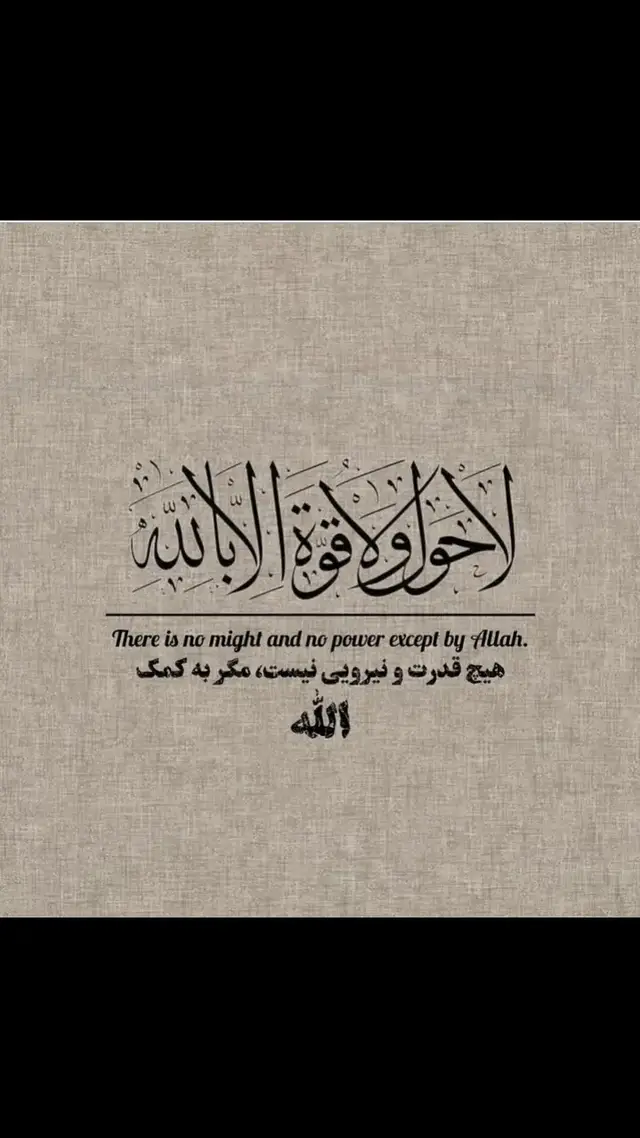 لا حول ولا قوة إلا بالله
There is no might and no power except by Allah.
هیچ قدرت و نیرویی نیست، مگر به کمک
الله